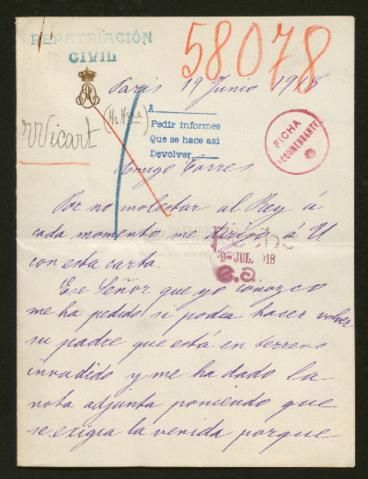 REPATRIACIÓN
CIVIL
58078
Paris 19 Junio 1918
A
Pedir informes
Que se hace así
Devolver
FICHA
Vicart
Amigo Torres
Por no molestar al Rey á
cada momento me dirijo á U
con esta carta.
9-JUL. 918
e.a.
Ese Señor que yo conozco
me ha pedido si podia hacer volver
su padre que está en terreno
invadido y me ha dado la
nota adjunta poniendo que
se exigia la venida porque